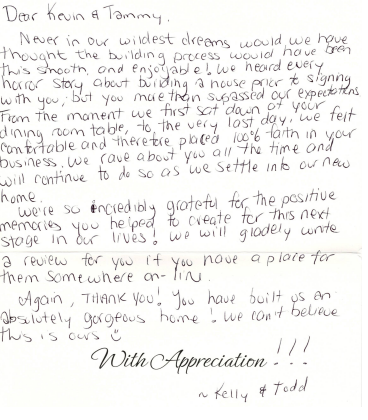 Dear Kevin & Tammy,
Never in our wildest dreams would we have
thought the building process would have been
this smooth and enjoyable! We heard every
horror story about building a house prior to signing
with you, but you more than supassed our expectations
From the moment we first sat down at your
dining room table, to the very last day, we felt
comfortable and therefore placed 100% faith in your
business. We rave about you all the time and
will continue to do so as we settle into our new
home.
We're so incredibly grateful for the positive
memories you helped to create for this next
stage in our lives! We will gladely write
a review for you if you have a place for
them somewhere on-line.
Again, THANK YOU! You have built us an
absolutely gorgeous home! We can't believe
this is ours ☺
With Appreciation!!!
~ Kelly & Todd